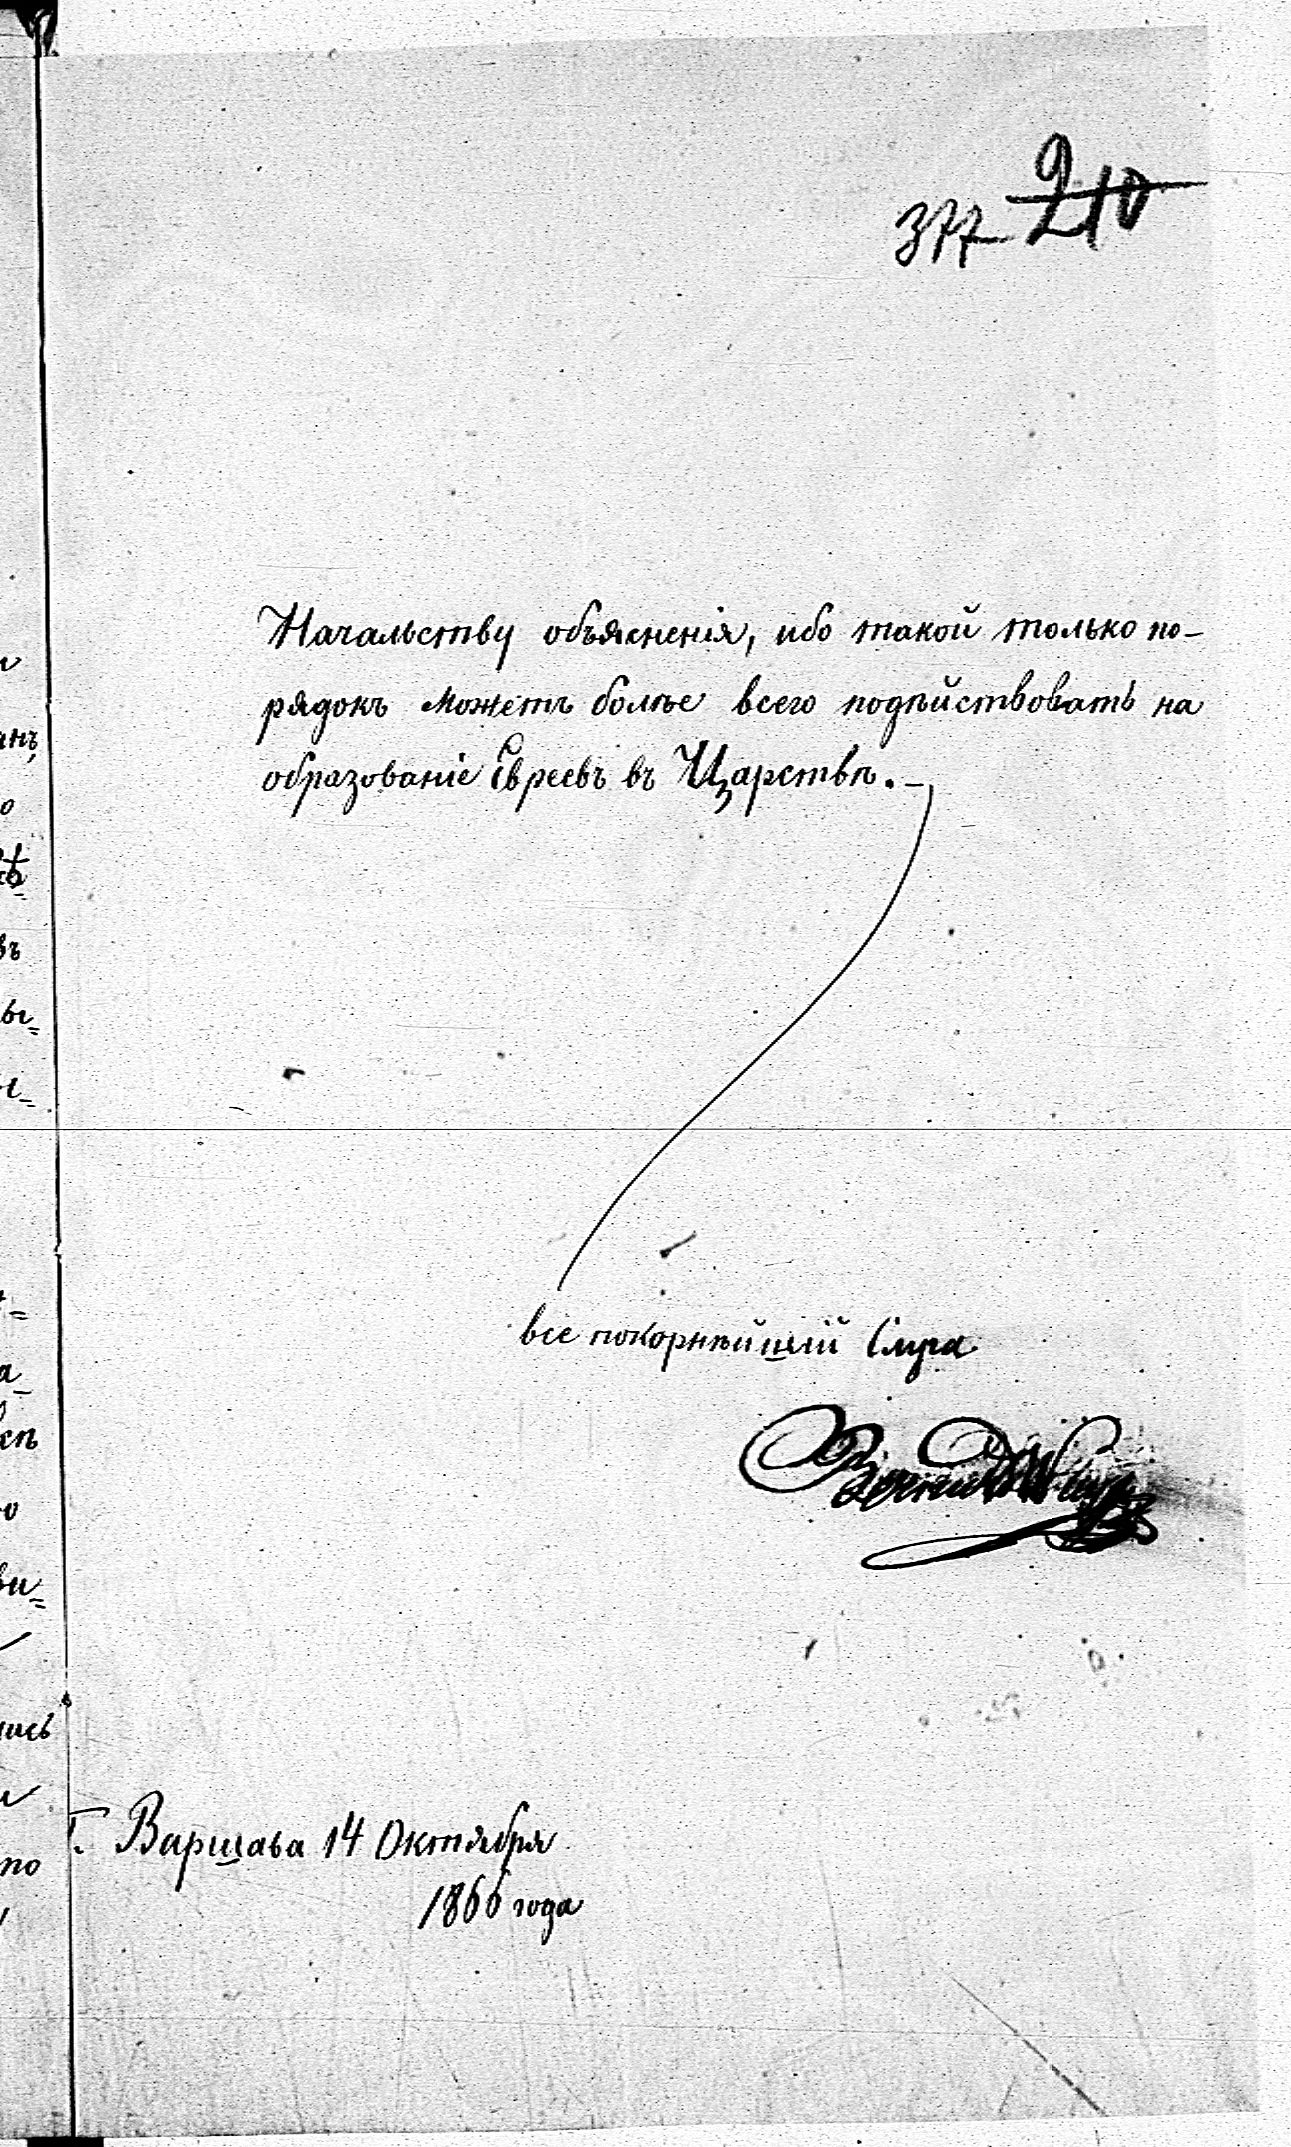 210
377
Начальству объясненія, ибо такой только по-
рядокъ можетъ болѣе всего подѣйствовать на
образованіе Евреевъ въ Царствѣ.-
все покорнѣйшій Слуга
Г. Варшава 14 Октября
1866 года